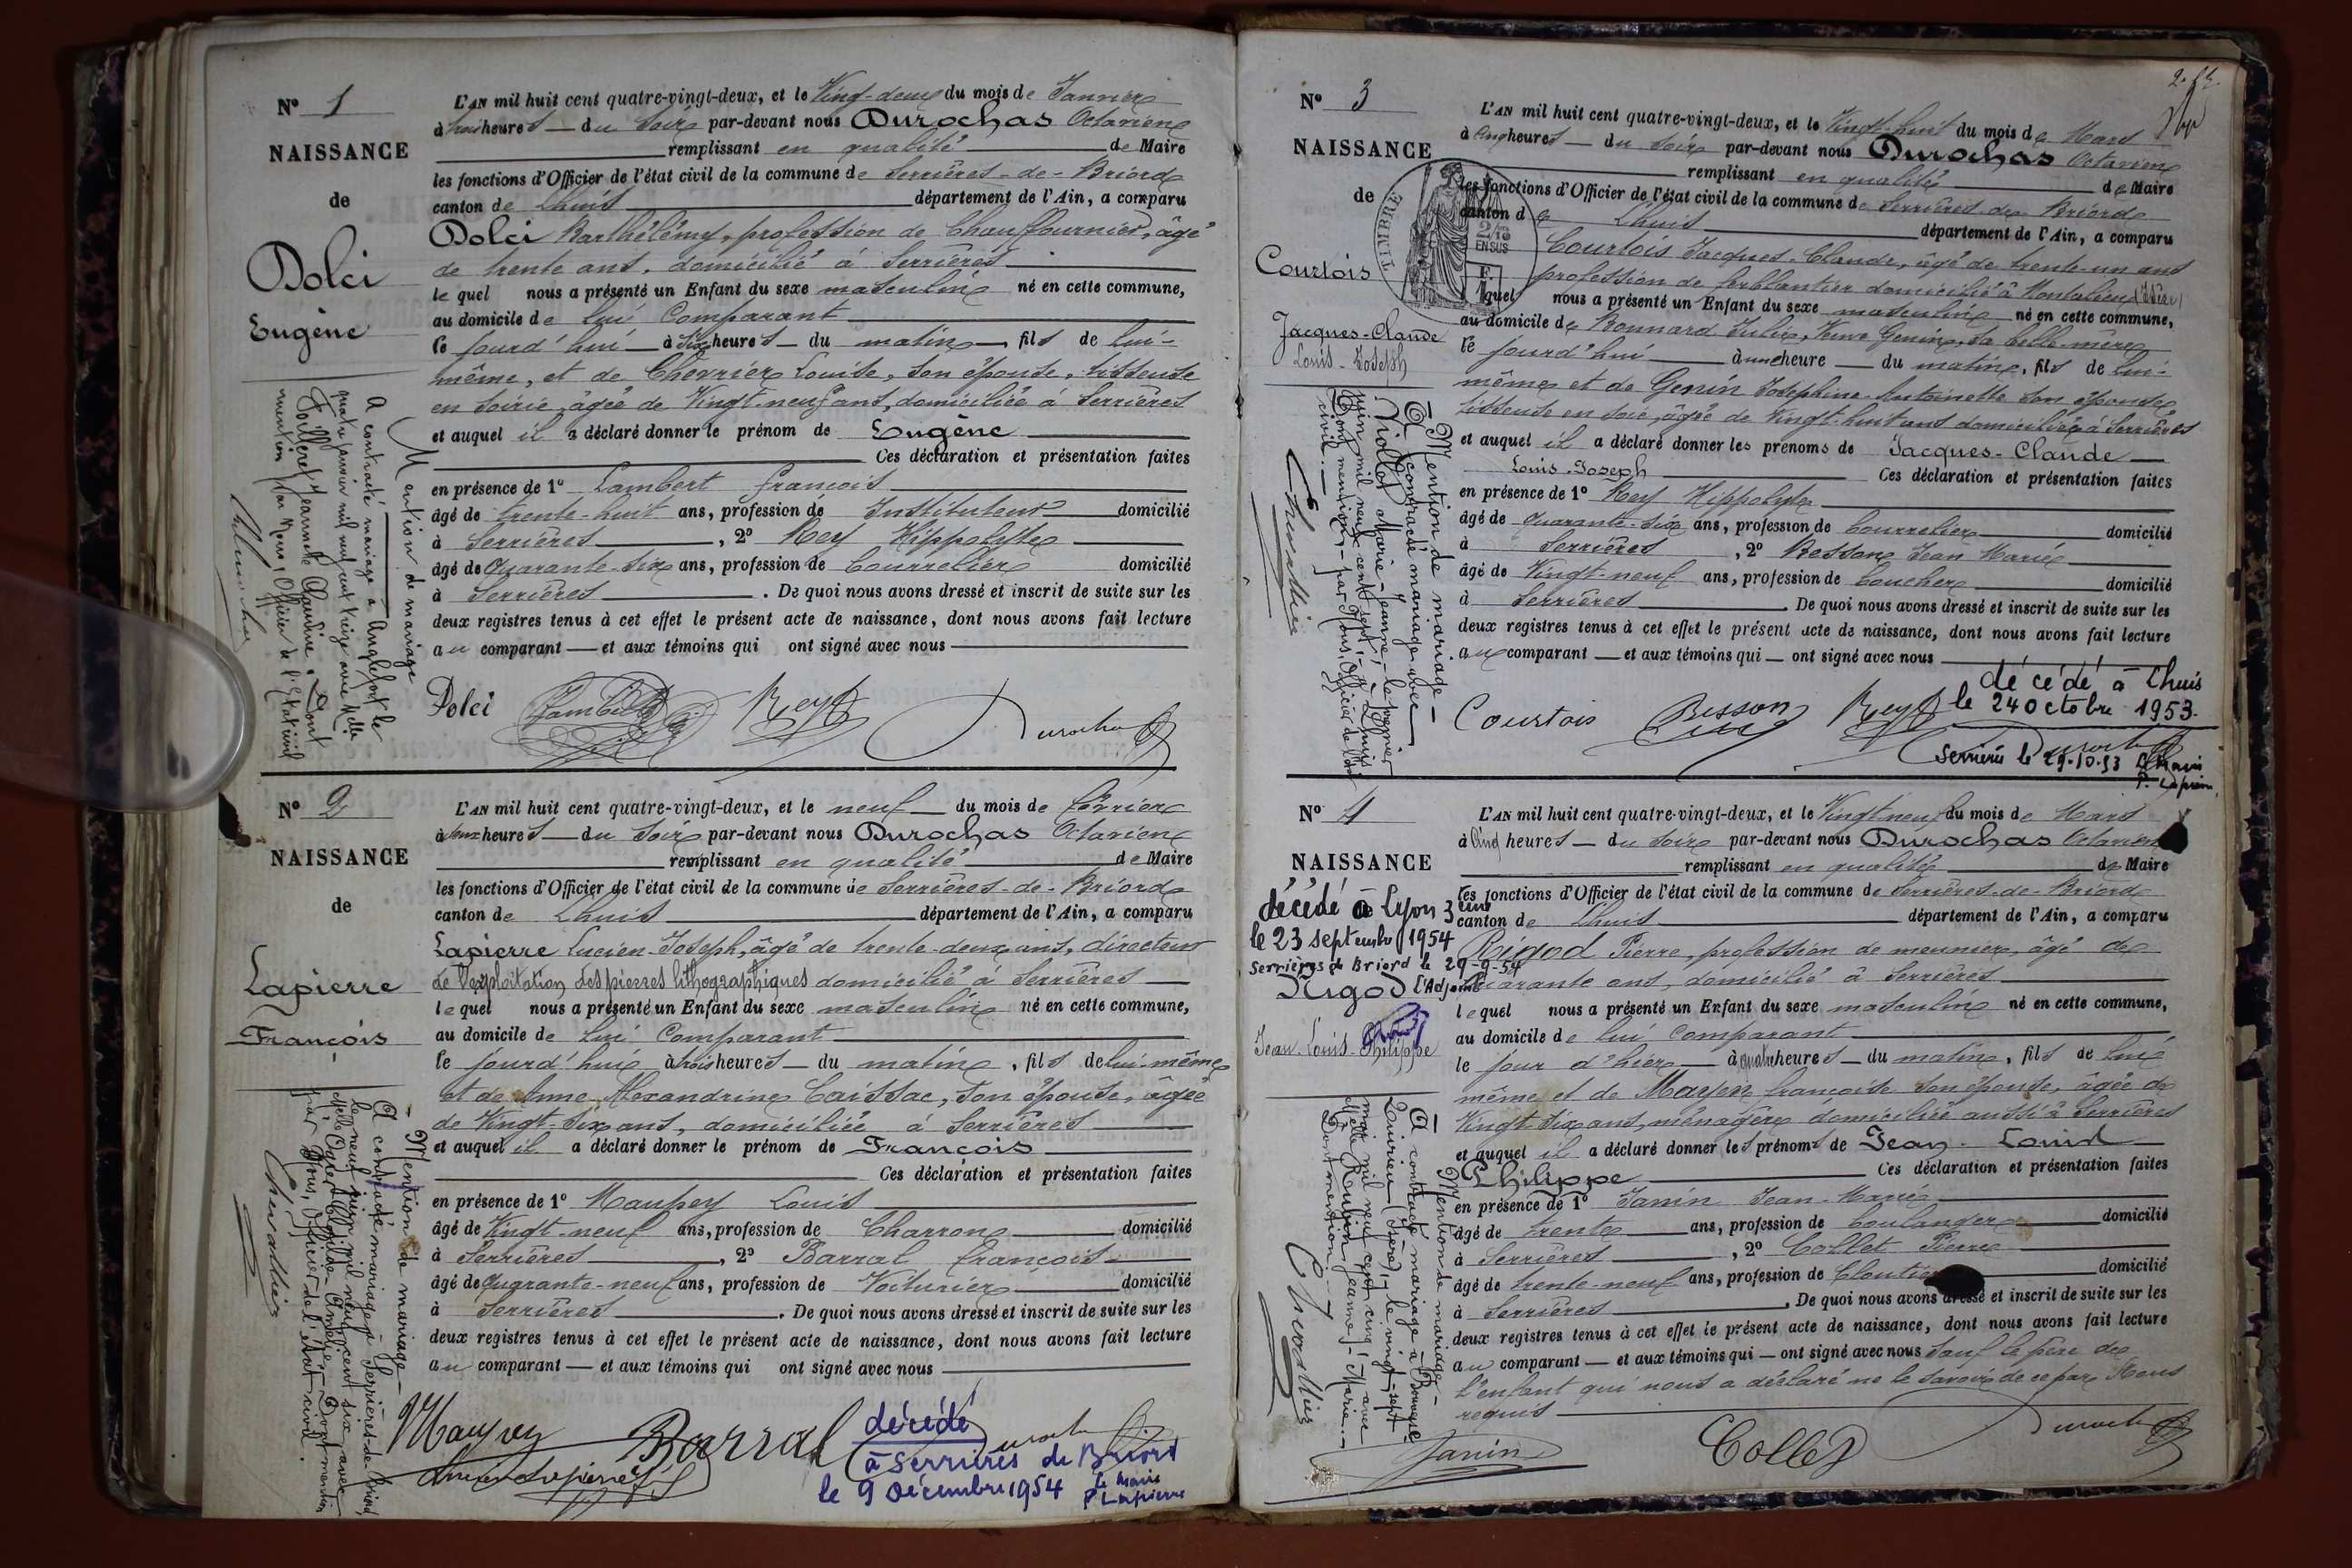 N° 1
NAISSANCE
de
Dolci
Eugène
Mention de mariage
A contracté mariage à Anglefort le
quatre janvier mil neuf cent treize avec Melle
Jeannette Claudine. Dont
mention par Nous, Officier de l'Etat civil
L'AN mil huit cent quatre-vingt-deux, et le Vingt-deux du mois de Janvier
à trois heures du soir par-devant nous Durochas Octavien
remplissant en qualité de Maire
les fonctions d'Officier de l'état civil de la commune de Serrières-de-Briord
canton de Lhuis département de l'Ain, a comparu
Dolci Barthélémy, profession de Chauffournier, âgé
de trente ans, domicilié à Serrières
le quel nous a présenté un Enfant du sexe masculin né en cette commune,
au domicile de lui Comparant
le jourd'hui à six heures du matin fils de lui-
même, et de Chevrier Louise, son épouse, tisseuse
en soirie, âgée de Vingt-neuf ans, domiciliée à Serrières
et auquel il a déclaré donner le prénom de Eugène
Ces déclaration et présentation faites
en présence de 1° Lambert François
âgé de trente-huit ans, profession de Instituteur domicilié
à Serrières, 2° Rey Hippolyte
âgé de Quarante-six ans, profession de Courrelier domicilié
à Serrières. De quoi nous avons dressé et inscrit de suite sur les
deux registres tenus à cet effet le présent acte de naissance, dont nous avons fait lecture
au comparant et aux témoins qui ont signé avec nous
Dolci Lambert Rey Durochas
N° 2
NAISSANCE
de
Lapierre
François
Mention de mariage
A contracté mariage à Serrières-de-Briord,
le neuf juin mil neuf cent six avec
Melle Clotilde-Amélie. Dont mention
par Nous, Officier de l'état civil.
Chevallier
L'AN mil huit cent quatre-vingt-deux, et le neuf du mois de Février
à deux heures du soir par-devant nous Durochas Octavien
remplissant en qualité de Maire
les fonctions d'Officier de l'état civil de la commune de Serrières-de-Briord
canton de Lhuis département de l'Ain, a comparu
Lapierre Lucien-Joseph, âgé de trente-deux ans, directeur
de l'exploitation des pierres lithographiques domicilié à Serrières
le quel nous a présenté un Enfant du sexe masculin né en cette commune,
au domicile de lui Comparant
le jourd'hui à trois heures du matin, fils de lui-même
et de Anne Alexandrine Caissac, son épouse, âgée
de Vingt-six ans, domiciliée à Serrières
et auquel il a déclaré donner le prénom de François
Ces déclaration et présentation faites
en présence de 1° Maupey Louis
âgé de Vingt-neuf ans, profession de Charron domicilié
à Serrières, 2° Barral François
âgé de Quarante-neuf ans, profession de Voiturier domicilié
à Serrières. De quoi nous avons dressé et inscrit de suite sur les
deux registres tenus à cet effet le présent acte de naissance, dont nous avons fait lecture
au comparant et aux témoins qui ont signé avec nous
Maupey Barral Durochas
Lucien Lapierre
décédé
à Serrières de Briord
le 9 Décembre 1954
le Maire
P Lapierre
N° 3
NAISSANCE
de
Courtois
Jacques-Claude
Louis-Joseph
TIMBRE
2/10
EN SUS
Mention de mariage
A contracté mariage avec
Viollet Marie-Jeanne, le premier
juin mil neuf cent sept, à Lhuis
Dont mention par Nous, Officier de l'état
civil.
Chevallier
L'AN mil huit cent quatre-vingt-deux, et le Vingt-huit du mois de Mars
à cinq heures du soir par-devant nous Durochas Octavien
remplissant en qualité de Maire
les fonctions d'Officier de l'état civil de la commune de Serrières-de-Briord
canton de Lhuis département de l'Ain, a comparu
Courtois Jacques-Claude, âgé de trente-un ans
profession de ferblantier domicilié à Montalieu (Isère)
lequel nous a présenté un Enfant du sexe masculin né en cette commune,
au domicile de Bonnard Julie, Veuve Genin, sa belle-mère
le jourd'hui à une heure du matin, fils de lui-
même et de Genin Joséphine Antoinette son épouse
tisseuse en soie, âgée de Vingt-huit ans domiciliée à Serrières
et auquel il a déclaré donner les prénoms de Jacques-Claude
Louis-Joseph Ces déclaration et présentation faites
en présence de 1° Rey Hippolyte
âgé de Quarante-six ans, profession de Courrelier domicilié
à Serrières, 2° Besson Jean Marie
âgé de Vingt-neuf ans, profession de boucher domicilié
à Serrières. De quoi nous avons dressé et inscrit de suite sur les
deux registres tenus à cet effet le présent acte de naissance, dont nous avons fait lecture
au comparant et aux témoins qui ont signé avec nous
décédé à Lhuis
le 24 Octobre 1953.
Courtois Besson Rey Durochas
Serrières le 29-10-53 le Maire
P. Lapierre
N° 4
NAISSANCE
de
décédé à Lyon 3ème
le 23 septembre 1954
Serrières de Briord le 29-9-54
l'Adjoint
Rigod
Jean-Louis-Philippe
Mention de mariage
A contracté mariage à Bouvesse
Quirieu (Isère), le vingt-sept
mai mil neuf cent cinq, avec
Melle Jeanne-Marie
Dont mention
Chevallier
L'AN mil huit cent quatre-vingt-deux, et le Vingt-neuf du mois de Mars
à Cinq heures du soir par-devant nous Durochas Octavien
remplissant en qualité de Maire
les fonctions d'Officier de l'état civil de la commune de Serrières-de-Briord
canton de Lhuis département de l'Ain, a comparu
Rigod Pierre, profession de meunier, âgé de
Quarante ans, domicilié à Serrières
lequel nous a présenté un Enfant du sexe masculin né en cette commune,
au domicile de lui comparant
le jour d'hier à quatre heures du matin, fils de lui
même et de Mayen Françoise son épouse, âgée de
Vingt-six ans, ménagère domiciliée aussi à Serrières
et auquel il a déclaré donner les prénoms de Jean-Louis
Philippe Ces déclaration et présentation faites
en présence de 1° Janin Jean-Marie
âgé de trente ans, profession de boulanger domicilié
à Serrières, 2° Collet Pierre
âgé de trente-neuf ans, profession de Cloutier domicilié
à Serrières. De quoi nous avons dressé et inscrit de suite sur les
deux registres tenus à cet effet le présent acte de naissance, dont nous avons fait lecture
au comparant et aux témoins qui ont signé avec nous sauf le père de
l'enfant qui nous a déclaré ne le savoir de ce par Nous
requis
Janin Collet Durochas